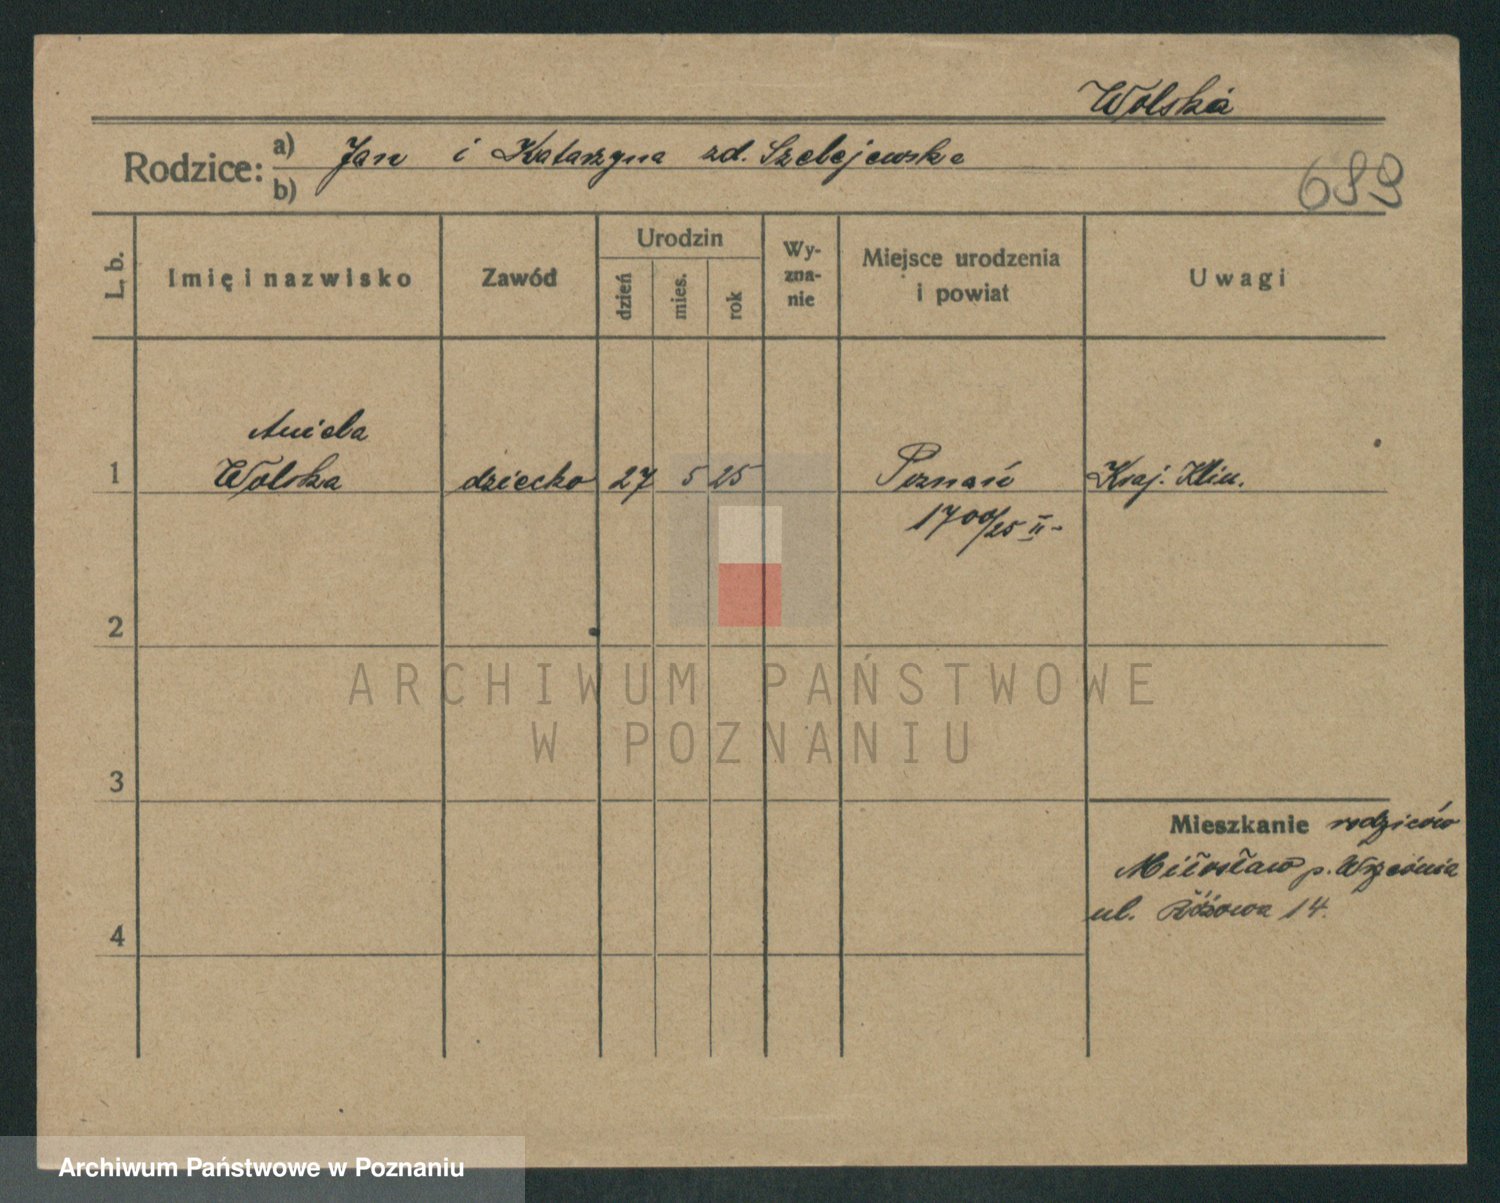 Wolska
Rodzice: a) Jan i Katarzyna zd. Szelejewska
b)
689
L. b.
Imię i nazwisko
Zawód
Urodzin
dzień
mies.
rok
Wy-
zna-
nie
Miejsce urodzenia
i powiat
Uwagi
Aniela
1 Wolska dziecko 27 5 25 Poznań Kraj. Klin.
1700/25 II
2
3
4
Mieszkanie rodziców
Miłosław p. Września
ul. Różowa 14.
ARCHIWUM PAŃSTWOWE
W POZNANIU
Archiwum Państwowe w Poznaniu